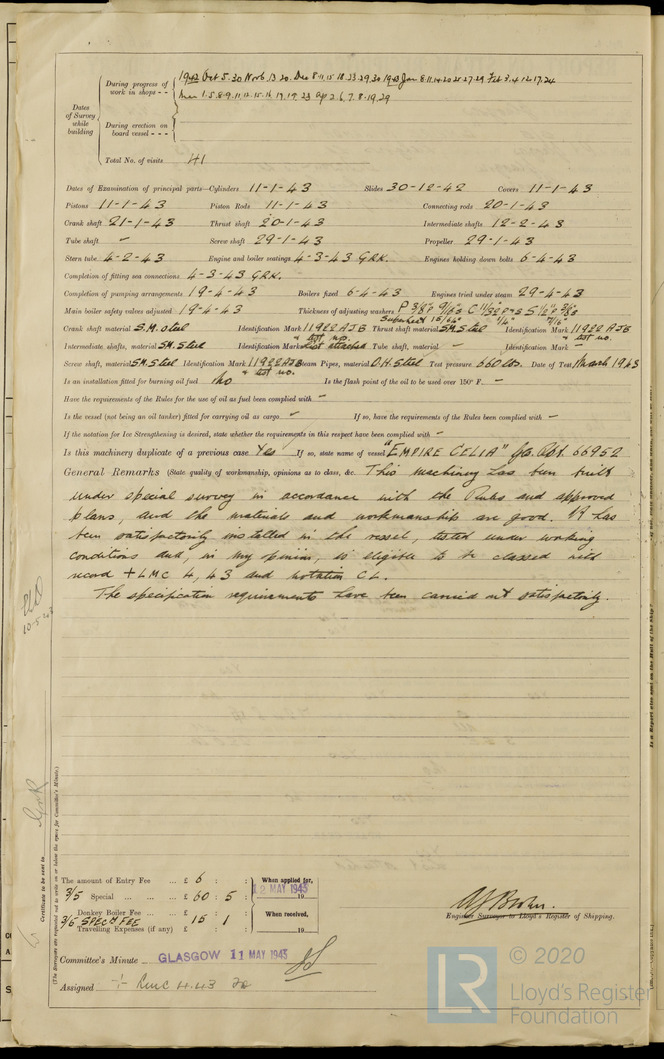 During progress of work in shops - -
1942 Oct 5. 30 Nov 6. 13 20. Dec 8. 11. 15 18. 23. 29. 30 1943 Jan 8. 11. 14 20 25 27. 29 Feb 3. 4. 12 17. 24
Mar 1. 5. 8. 9. 11. 12. 15. 16 17. 19. 23 Ap 2. 6. 7. 8. 19. 29
Dates of Survey while building
During erection on board vessel - - -
Total No. of visits 41
Dates of Examination of principal parts—Cylinders 11-1-43 Slides 30-12-42 Covers 11-1-43
Pistons 11-1-43 Piston Rods 11-1-43 Connecting rods 20-1-43
Crank shaft 21-1-43 Thrust shaft 20-1-43 Intermediate shafts 12-2-43
Tube shaft - Screw shaft 29-1-43 Propeller 29-1-43
Stern tube 4-2-43 Engine and boiler seatings 4-3-43 GRK. Engines holding down bolts 6-4-43
Completion of fitting sea connections 4-3-43 GRK.
Completion of pumping arrangements 19-4-43 Boilers fixed 6-4-43 Engines tried under steam 29-4-43
Main boiler safety valves adjusted 19-4-43 Thickness of adjusting washers
Superheat 15/64"
Crank shaft material S.M. Steel Identification Mark 11922 AJB Thrust shaft material SM Steel Identification Mark 11922 AJB
& test no. & test no.
Intermediate shafts, material SM. Steel Identification Marks List attached Tube shaft, material - Identification Mark -
Screw shaft, material SM. Steel Identification Mark 11922 AJB Steam Pipes, material O.H. Steel Test pressure 660 lbs. Date of Test March 1943
& test no.
Is an installation fitted for burning oil fuel No Is the flash point of the oil to be used over 150° F. -
Have the requirements of the Rules for the use of oil as fuel been complied with -
Is the vessel (not being an oil tanker) fitted for carrying oil as cargo - If so, have the requirements of the Rules been complied with -
If the notation for Ice Strengthening is desired, state whether the requirements in this respect have been complied with -
Is this machinery duplicate of a previous case Yes If so, state name of vessel "EMPIRE CELIA" Gls. Rpt. 66952
General Remarks (State quality of workmanship, opinions as to class, &c. This machinery has been built
under special survey in accordance with the Rules and approved
plans, and the materials and workmanship are good. It has
been satisfactorily installed in the vessel, tested under working
conditions and, in my opinion, is eligible to be classed with
record + LMC 4,43 and notation CL.
The specification requirements have been carried out satisfactorily.
10-5-43
Certificate to be sent to
(The Surveyors are requested not to write on or below the space for Committee's Minute.)
The amount of Entry Fee ... £ 6 : :
3/5 Special ... ... ... £ 60 : 5 :
Donkey Boiler Fee ... ... £ : :
3/5 SPECN FEE £ 15 : 1 :
Travelling Expenses (if any) £ : :
When applied for,
12 MAY 1943
19
When received,
19
A J Brown.
Engineer Surveyor to Lloyd's Register of Shipping.
Committee's Minute GLASGOW 11 MAY 1943
Assigned + LMC 4.43
LR
© 2020
Lloyd's Register
Foundation